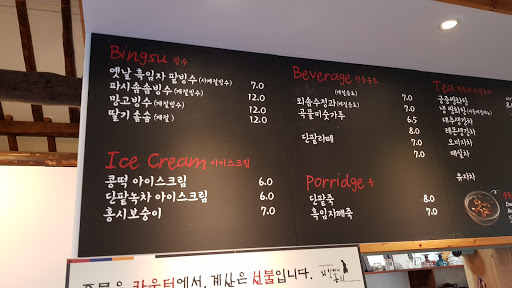 Bingsu 빙수
옛날 흑임자 팥빙수(사계절빙수) 7.0
파시솔솔빙수(계절빙수) 12.0
망고빙수(계절빙수) 12.0
딸기솜솜(계절) 12.0
Ice Cream 아이스크림
콩떡 아이스크림 6.0
단팥녹차 아이스크림 6.0
홍시보숭이 7.0
Beverage 전통음료
(계절음료) 7.0
외솔수정과(계절음료) 7.0
곡물미숫가루 6.5
단팥라떼 8.0
Porridge 죽
단팥죽 8.0
흑임자깨죽 7.0
Tea
궁중쌍화탕
냉 쌍화탕
대추생강차
레몬생강차
오미자차
매실차
유자차
주문은 카운터에서, 계산은 선불입니다.